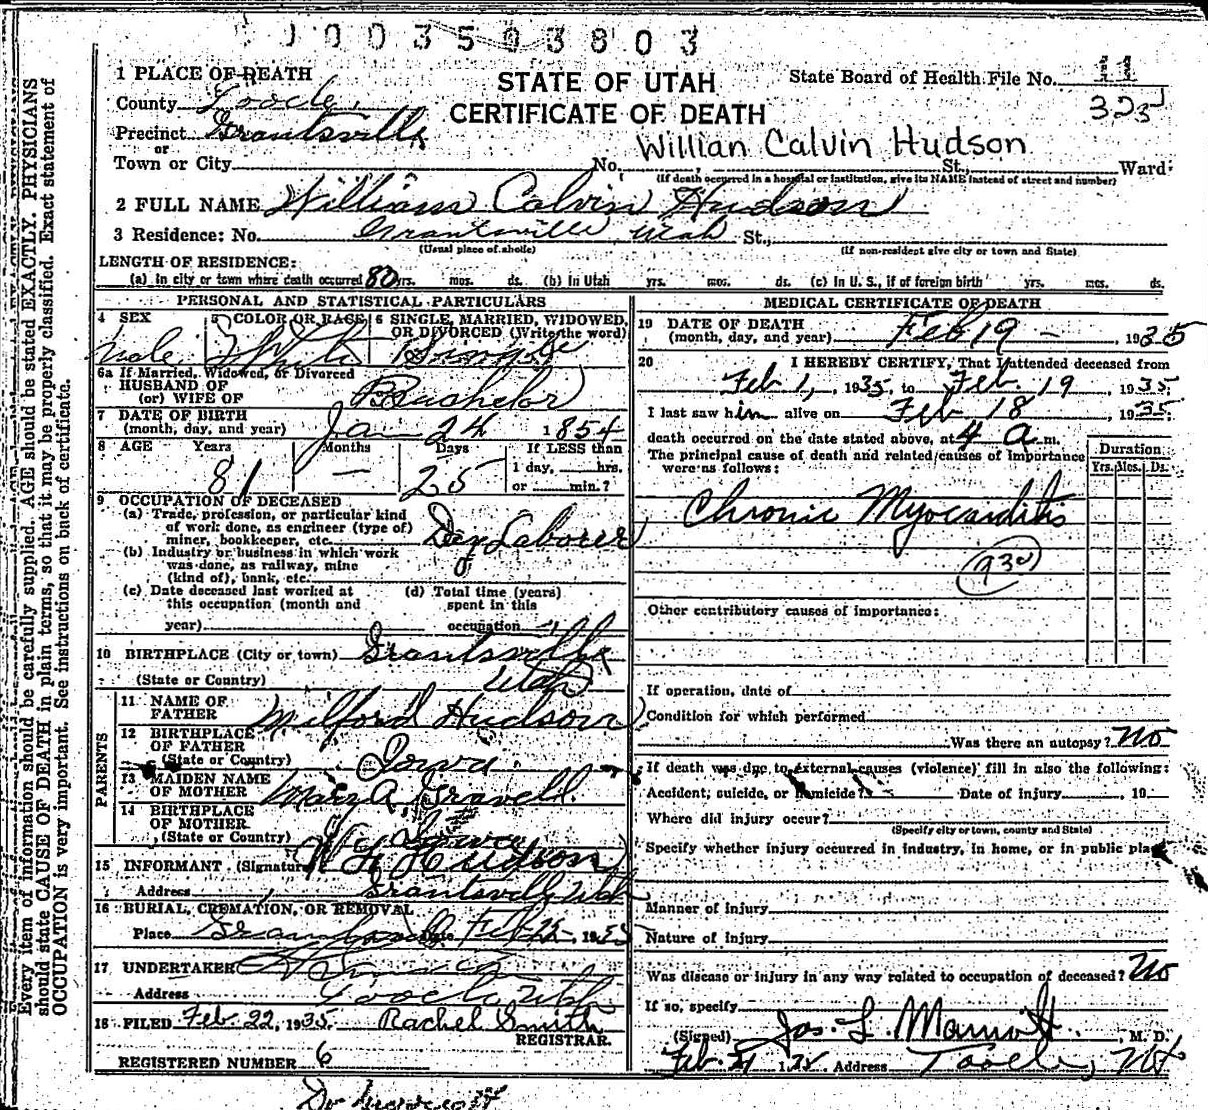 1003503803
1 PLACE OF DEATH
STATE OF UTAH
CERTIFICATE OF DEATH
State Board of Health File No. 11
323
County Tooele
Precinct Grantsville
or
Town or City No. St., Ward
Willian Calvin Hudson
(If death occurred in a hospital or institution, give its NAME instead of street and number)
2 FULL NAME William Calvin Hudson
3 Residence: No. Grantsville Utah St.,
(Usual place of abode) (If non-resident give city or town and State)
LENGTH OF RESIDENCE:
(a) In city or town where death occurred 80 yrs. mos. ds. (b) In Utah yrs. mos. ds. (c) In U. S., if of foreign birth yrs. mos. ds.
PERSONAL AND STATISTICAL PARTICULARS
4 SEX 5 COLOR OR RACE 6 SINGLE, MARRIED, WIDOWED,
OR DIVORCED (Write the word)
Male White Single
6a If Married, Widowed, or Divorced
HUSBAND OF
(or) WIFE OF Bachelor
7 DATE OF BIRTH
(month, day, and year) Jan 24 1854
8 AGE Years Months Days If LESS than
1 day, hrs.
or min.?
81 — 25
9 OCCUPATION OF DECEASED
(a) Trade, profession, or particular kind
of work done, as engineer (type of)
miner, bookkeeper, etc. Day Laborer
(b) Industry or business in which work
was done, as railway, mine
(kind of), bank, etc.
(c) Date deceased last worked at
this occupation (month and
year)
(d) Total time (years)
spent in this
occupation
10 BIRTHPLACE (City or town) Grantsville
(State or Country) Utah
PARENTS
11 NAME OF
FATHER Milford Hudson
12 BIRTHPLACE
OF FATHER
(State or Country) Iowa
13 MAIDEN NAME
OF MOTHER Mary A. Gravell
14 BIRTHPLACE
OF MOTHER
(State or Country) Iowa
15 INFORMANT (Signature) Hudson
Address Grantsville Utah
16 BURIAL, CREMATION, OR REMOVAL
Place Grantsville Date Feb 1935
17 UNDERTAKER
Address Tooele Utah
18 FILED Feb. 22, 1935. Rachel Smith
REGISTRAR.
REGISTERED NUMBER 6
MEDICAL CERTIFICATE OF DEATH
19 DATE OF DEATH
(month, day, and year) Feb 19 — 1935
20 I HEREBY CERTIFY, That I attended deceased from
Feb 1, 1935 to Feb. 19 1935
I last saw him alive on Feb 18 1935
death occurred on the date stated above, at 4 a m.
The principal cause of death and related causes of importance
were as follows:
Duration
Yrs. Mos. Ds.
Chronic Myocarditis
930
Other contributory causes of importance:
If operation, date of
Condition for which performed
Was there an autopsy? No
If death was due to external causes (violence) fill in also the following:
Accident, suicide, or homicide? Date of injury, 19
Where did injury occur?
(Specify city or town, county and State)
Specify whether injury occurred in industry, in home, or in public place
Manner of injury
Nature of injury
Was disease or injury in any way related to occupation of deceased? No
If so, specify
(Signed) Jas. L. Marriott, M. D.
Feb. 21 1935 Address Tooele, Ut
Every item of information should be carefully supplied. AGE should be stated EXACTLY. PHYSICIANS
should state CAUSE OF DEATH in plain terms, so that it may be properly classified. Exact statement of
OCCUPATION is very important. See instructions on back of certificate.